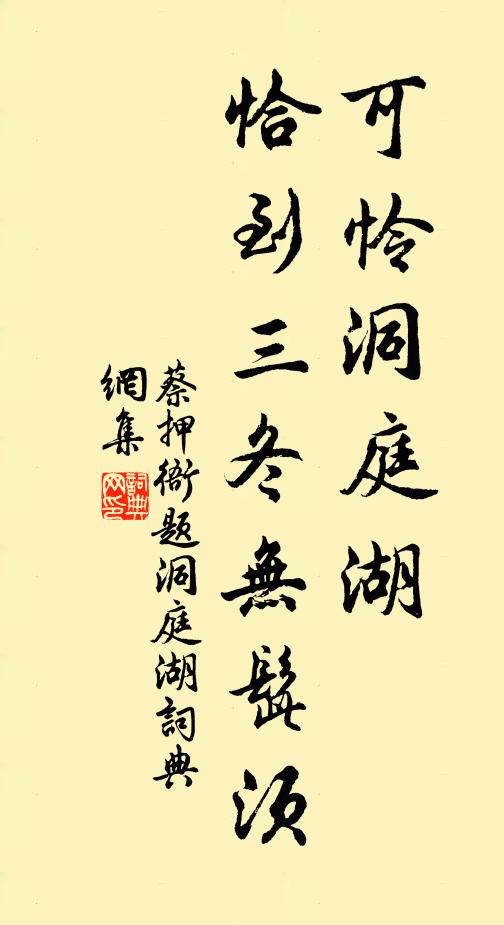 可怜洞庭湖
恰到三冬無髭须
蔡押衙题洞庭湖詞典
網集
詞典网印